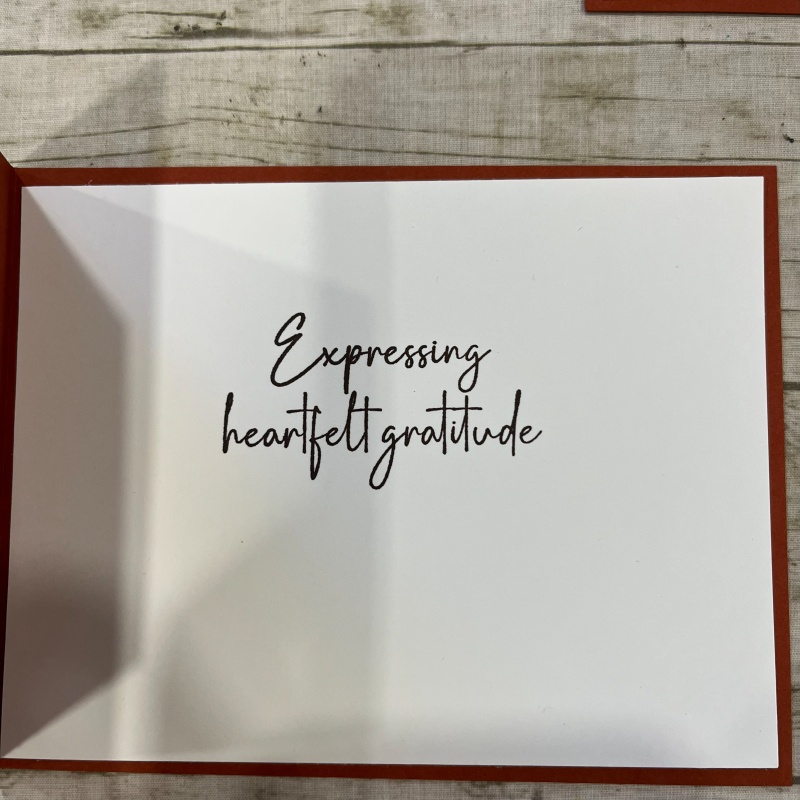 Expressing
heartfelt gratitude